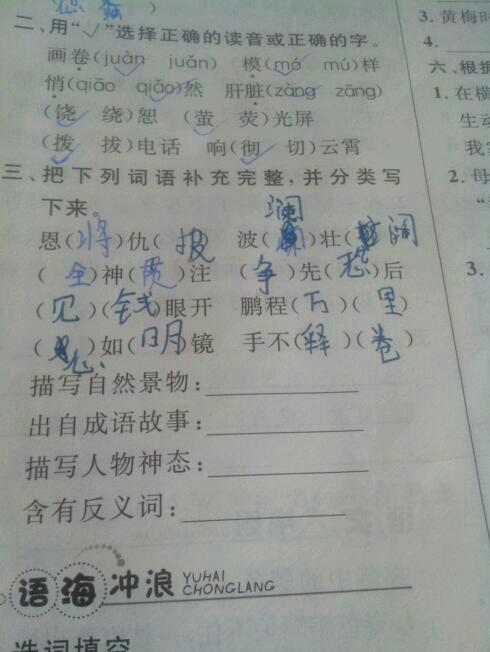 二、用“√”选择正确的读音或正确的字。
画卷(juàn juǎn) 模(mó mú)样
悄(qiāo qiǎo)然 肝脏(zàng zāng)
(饶 绕)恕 (萤 荧)光屏
(拨 拔)电话 响(彻 切)云霄
三、把下列词语补充完整,并分类写
下来。
恩(将)仇(报 波(澜)壮(阔
(全)神(贯)注 (争)先(恐)后
(见)(钱)眼开 鹏程(万)(里)
( )如(明)镜 手不(释)(卷)
描写自然景物:
出自成语故事:
描写人物神态:
含有反义词:
语海冲浪 YUHAI CHONGLANG
选词填空
3. 黄梅时
4.
六、根据
1. 在横
生动
我
2. 母
3.